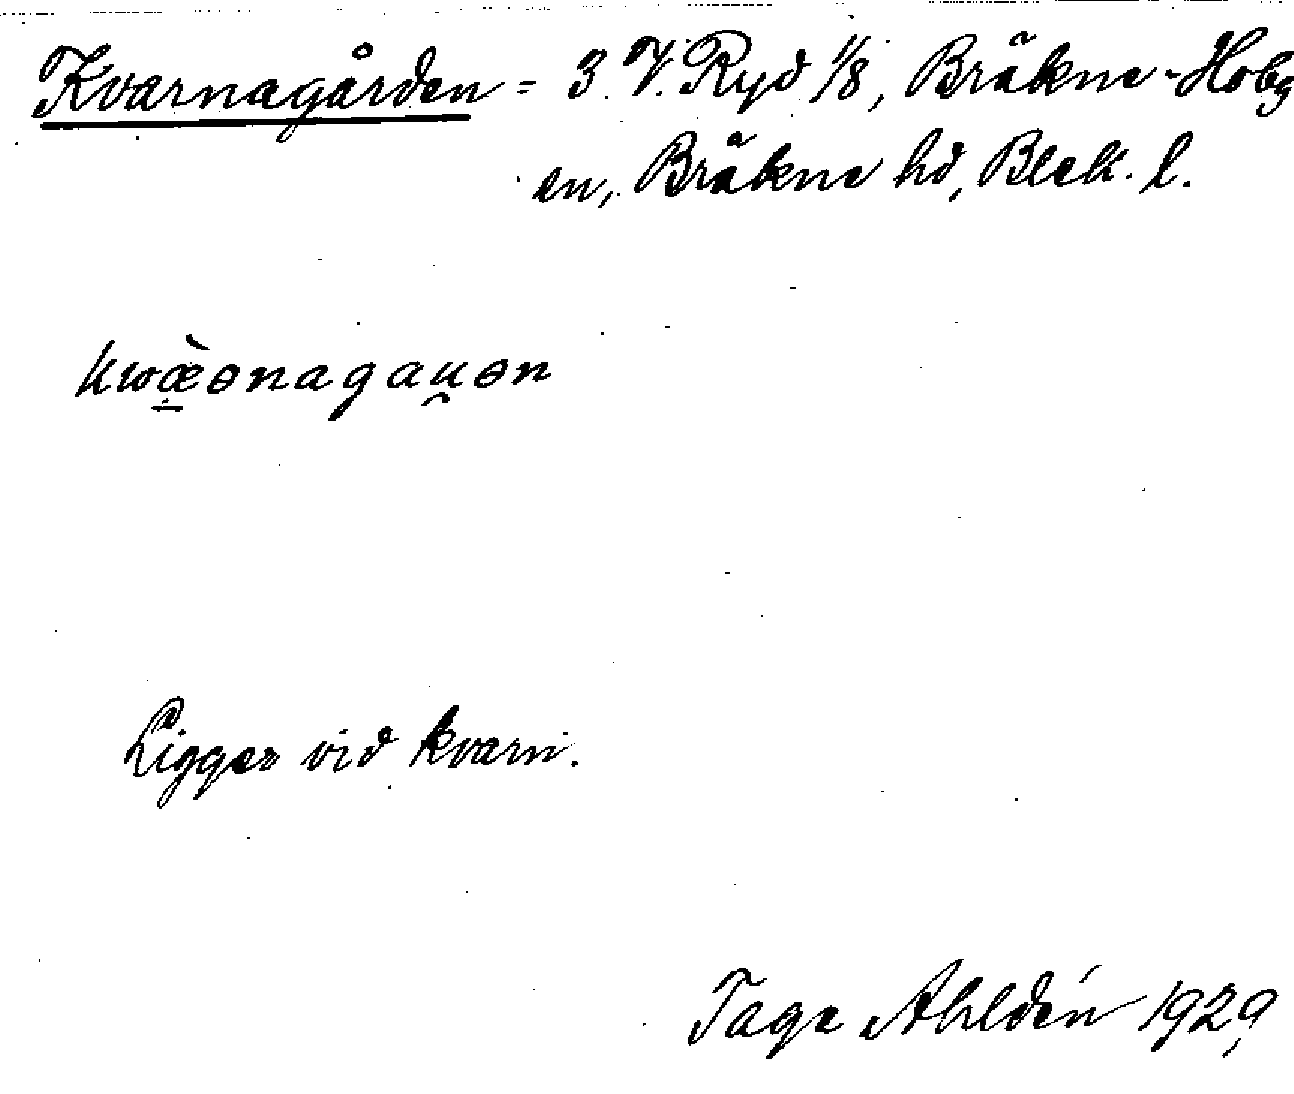 Kvarnagården = 3 V. Ryd 1/8, Bräkne-Hoby
sn, Bräkne hd, Blek. l.
kwæ̀ənagau̯ən
Ligger vid kvarn.
Tage Ahldén 1929